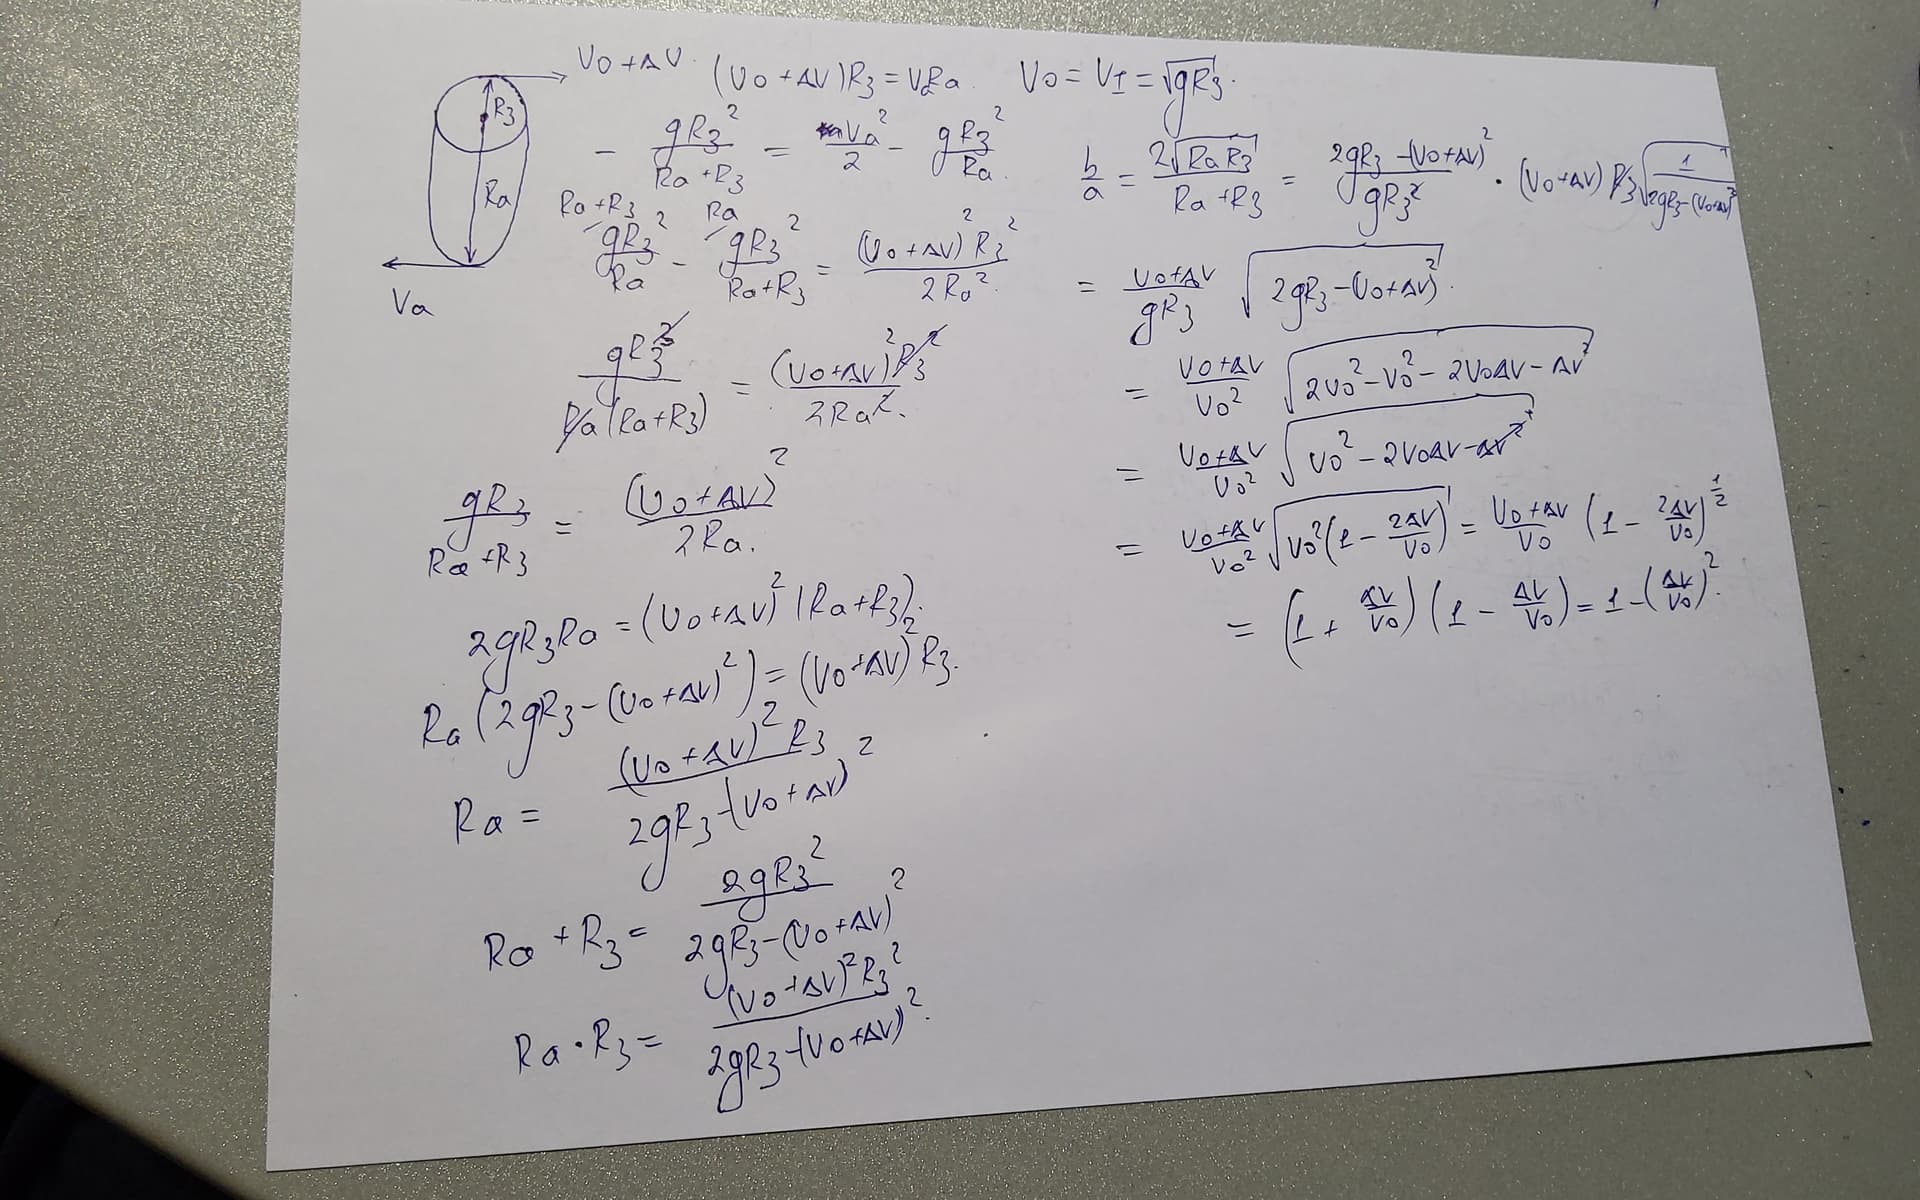 V0+ΔV (V0+ΔV)R3=VaRa. V0=VI=√gR3.
R3
Ra
Va
- gR3²/(Ra+R3) = Va²/2 - gR3²/Ra.
Ra+R3 Ra
gR3²/Ra - gR3²/(Ra+R3) = (V0+ΔV)²R3²/2Ra².
gR3³/Ra(Ra+R3) = (V0+ΔV)²R3²/2Ra².
gR3/(Ra+R3) = (V0+ΔV)²/2Ra.
2gR3Ra=(V0+ΔV)²(Ra+R3).
Ra(2gR3-(V0+ΔV)²)=(V0+ΔV)²R3.
Ra= (V0+ΔV)²R3/(2gR3-(V0+ΔV)²)
Ra+R3= 2gR3²/(2gR3-(V0+ΔV)²)
Ra·R3= (V0+ΔV)²R3²/(2gR3-(V0+ΔV)²).
b/a = 2√RaR3/(Ra+R3) = (2gR3-(V0+ΔV)²)/gR3² · (V0+ΔV)R3√(1/(2gR3-(V0+ΔV)²))
= (V0+ΔV)/gR3 √(2gR3-(V0+ΔV)²).
= (V0+ΔV)/V0² √(2V0²-V0²-2V0ΔV-ΔV²)
= (V0+ΔV)/V0² √(V0²-2V0ΔV-ΔV²)
= (V0+ΔV)/V0² √(V0²(1-2ΔV/V0)) = (V0+ΔV)/V0 (1-2ΔV/V0)^1/2
= (1+ΔV/V0)(1-ΔV/V0)=1-(ΔV/V0)².